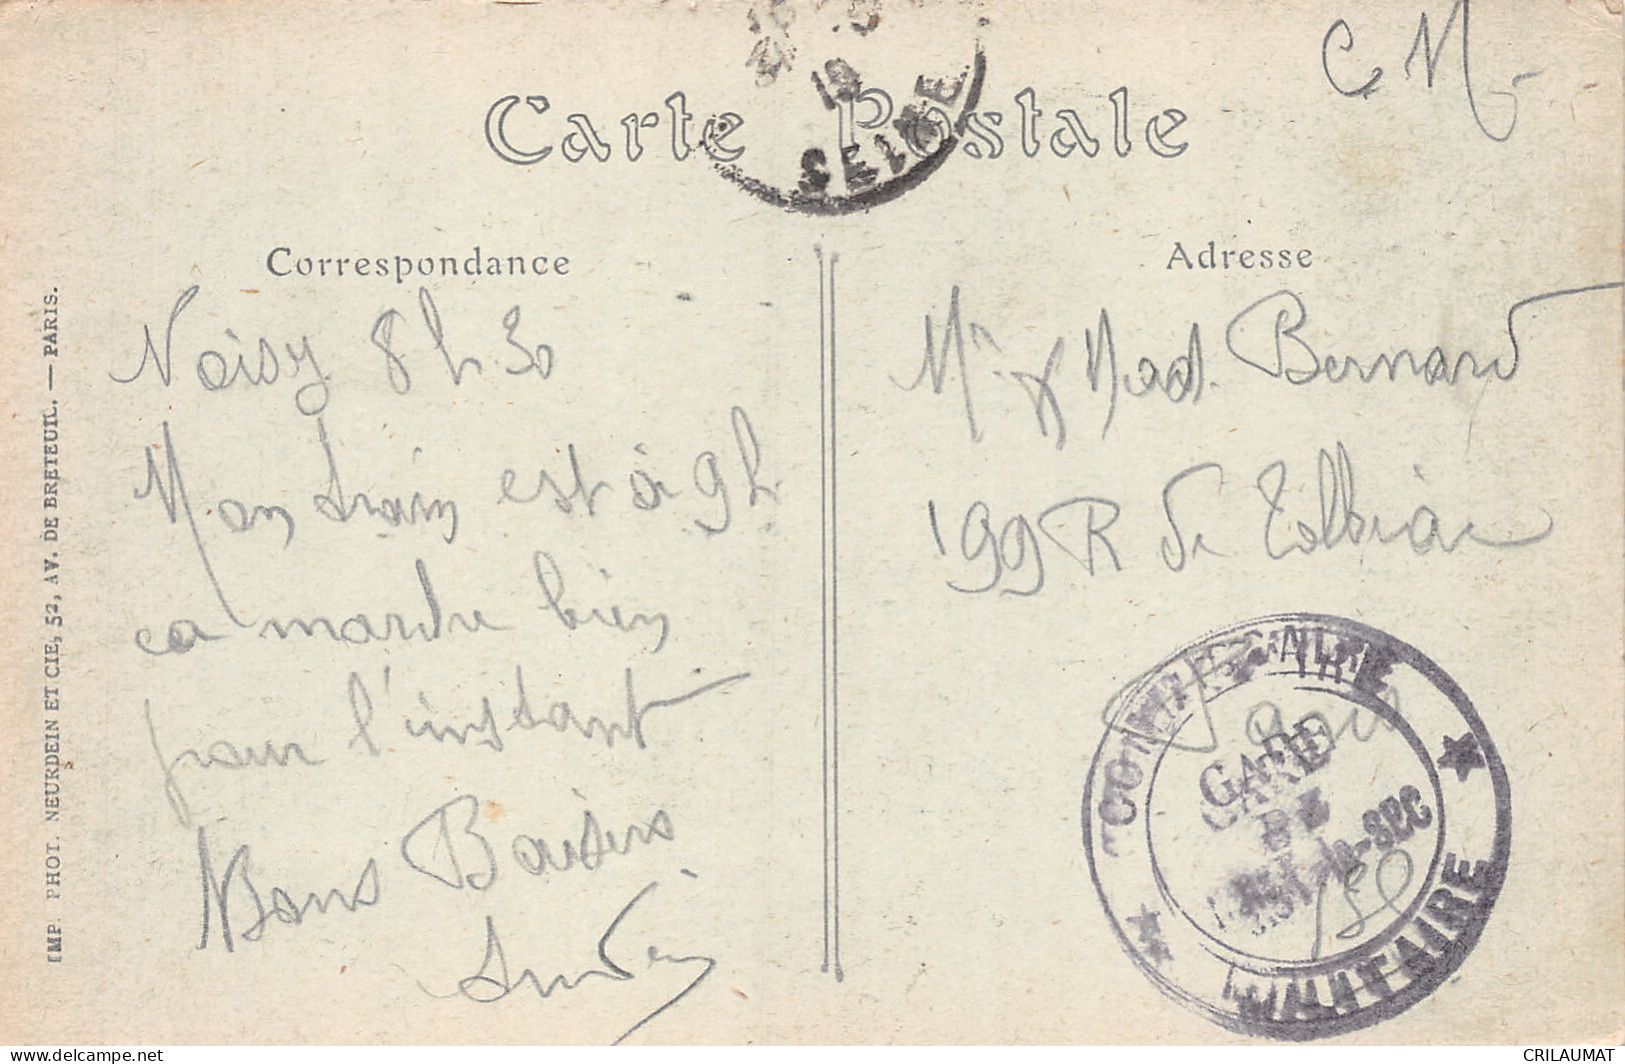 C M
Carte Postale
19
SEINE
Correspondance
Adresse
Noisy 8 h 30
Mon train est à 9 h
ça marche bien
pour l'instant
Bons Baisers
Mr & Mad. Bernard
199 R de Tolbiac
Paris
COMMISSAIRE
GARE
DE
-LE-SEC
MILITAIRE
IMP. PHOT. NEURDEIN ET CIE, 52, AV. DE BRETEUIL. — PARIS.
CRILAUMAT